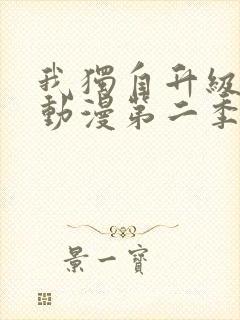 我獨自升級
動漫第二季
景一寶